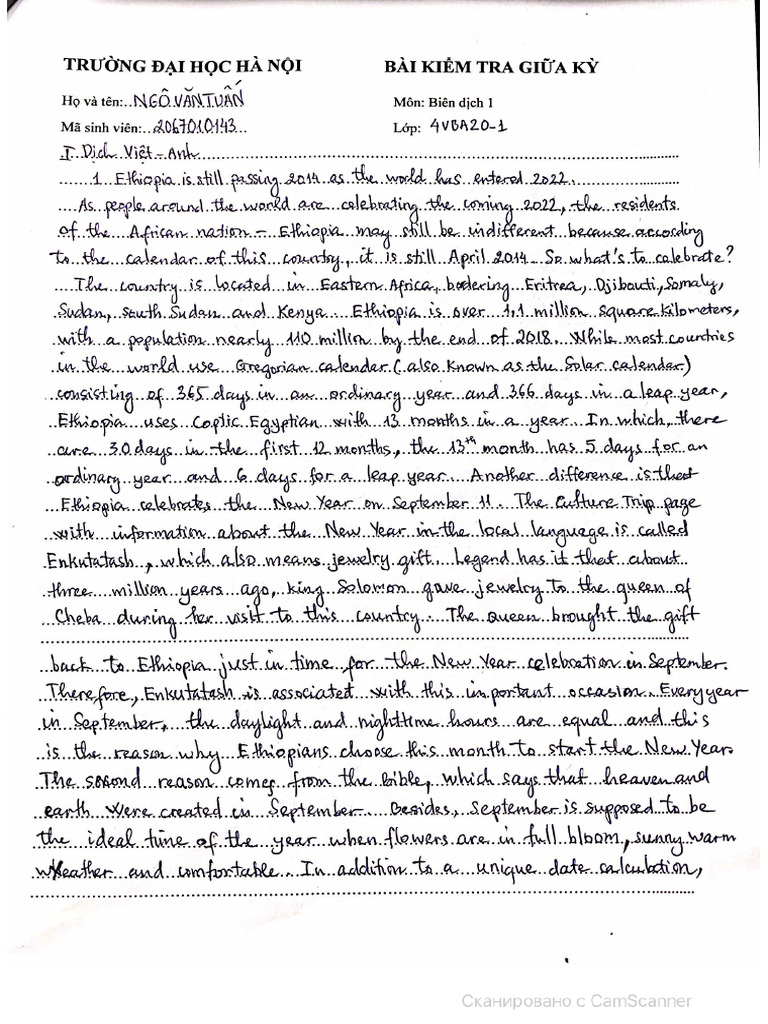 TRƯỜNG ĐẠI HỌC HÀ NỘI BÀI KIỂM TRA GIỮA KỲ
Họ và tên:..NGÔ.VĂN.TUẤN Môn: Biên dịch 1
Mã sinh viên:...2067010143... Lớp: 4VBA20-1
I Dịch Việt - Anh
1. Ethiopia is still passing 2014 as the world has entered 2022.
As people around the world are celebrating the coming 2022, the residents
of the African nation - Ethiopia may still be indifferent because according
to the calendar of this country, it is still April 2014. So what's to celebrate?
The country is located in Eastern Africa, bordering Eritrea, Djibouti, Somaly,
Sudan, south Sudan and Kenya. Ethiopia is over 1,1 million square kilometers,
with a population nearly 110 million by the end of 2018. While most countries
in the world use Gregorian calendar (also known as the Solar calendar)
consisting of 365 days in an ordinary year and 366 days in a leap year,
Ethiopia uses Coptic Egyptian with 13 months in a year. In which, there
are 30 days in the first 12 months, the 13th month has 5 days for an
ordinary year and 6 days for a leap year. Another difference is that
Ethiopia celebrates the New Year on September 11. The Culture Trip page
with information about the New Year in the local language is called
Enkutatash, which also means jewelry gift. Legend has it that about
three million years ago, king Solomon gave jewelry to the queen of
Cheba during her visit to this country. The Queen brought the gift
back to Ethiopia just in time for the New Year celebration in September.
Therefore, Enkutatash is associated with this important occasion. Every year
in September, the daylight and nighttime hours are equal and this
is the reason why Ethiopians choose this month to start the New Year.
The second reason comes from the bible, which says that heaven and
earth were created in September. Besides, September is supposed to be
the ideal time of the year when flowers are in full bloom, sunny warm
weather and comfortable. In addition to a unique date calculation,
Сканировано с CamScanner